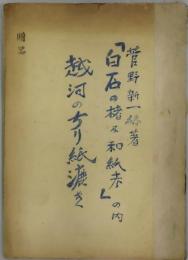 菅野新一編著
「白石の楮及和紙考」の内
越河のちり紙漉き